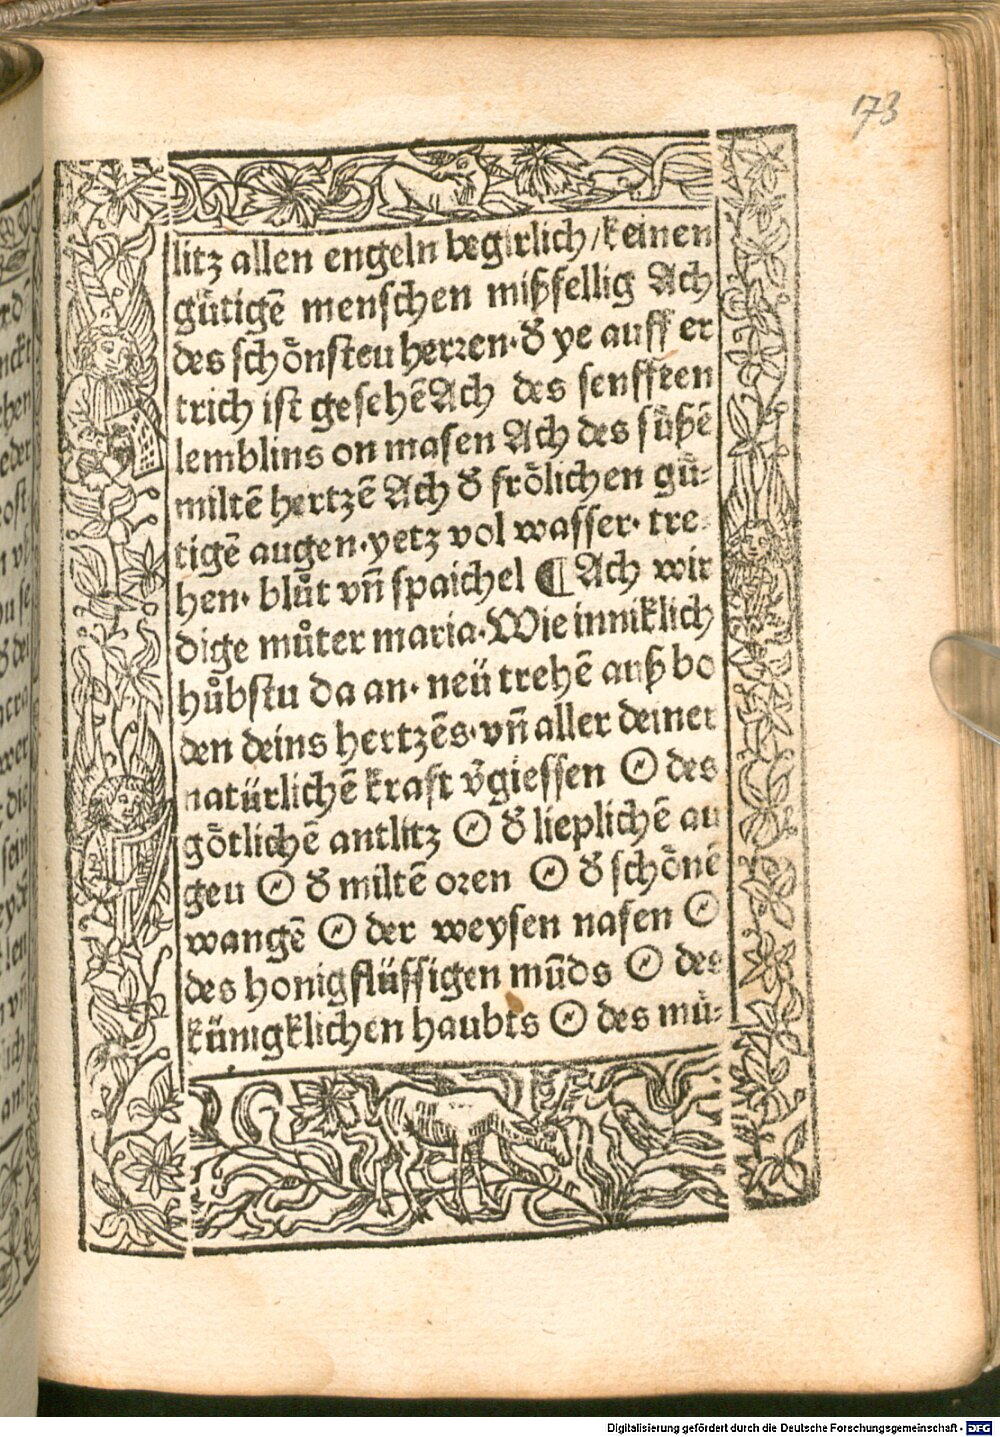 173
litz allen engeln begirlich / keinen
gütigē menschen mißfellig Ach
des schȫnsteu herren · d̕ ye auff er
trich ist gesehē Ach des senfften
lemblins on masen Ach des sůßē
miltē hertzē Ach d̕ frȫlichen gů-
tigē augen · yetz vol wasser · tre-
hen · blůt vn̄ spaichel ¶ Ach wir
dige můter maria · Wie inniklich
hůbstu da an · neü trehē auß bo
den deins hertzēs · vn̄ aller deiner
natürlichē kraft v̄giessen O des
gȫtlichē antlitz O d̕ lieplichē au
geu O d̕ miltē oren O d̕ schȫnē
wangē O der weysen nasen O
des honigflüssigen mūds O des
künigklichen haubts O des mů-
Digitalisierung gefördert durch die Deutsche Forschungsgemeinschaft - DFG